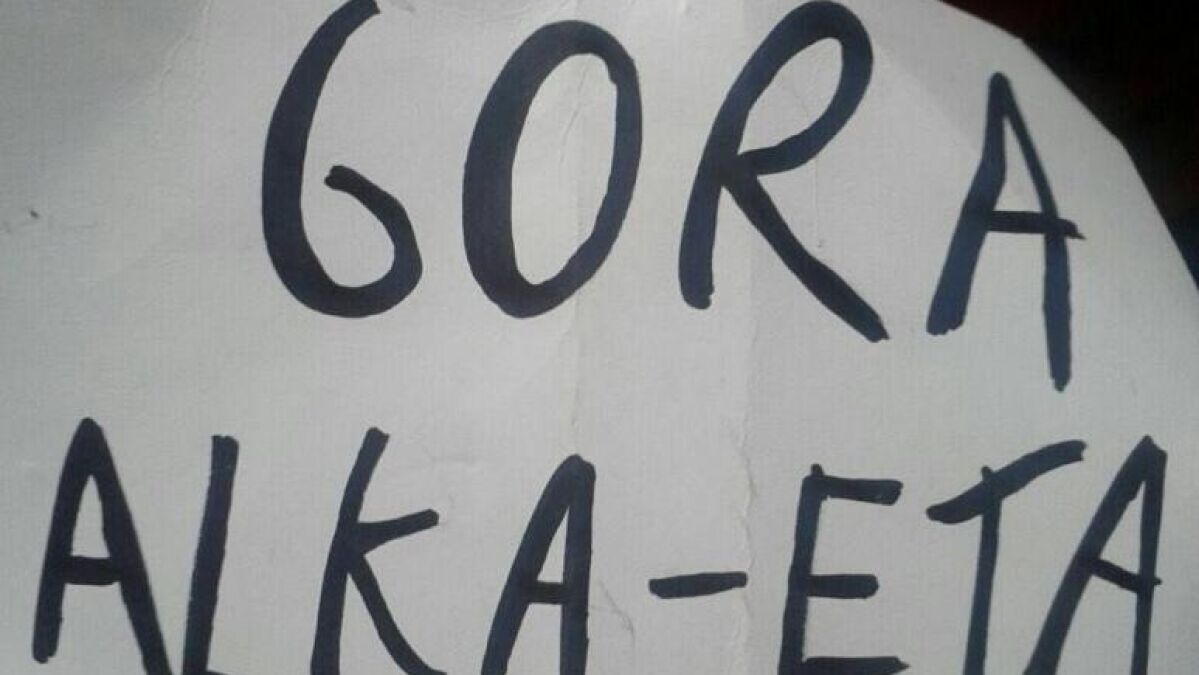 GORA
ALKA-ETA